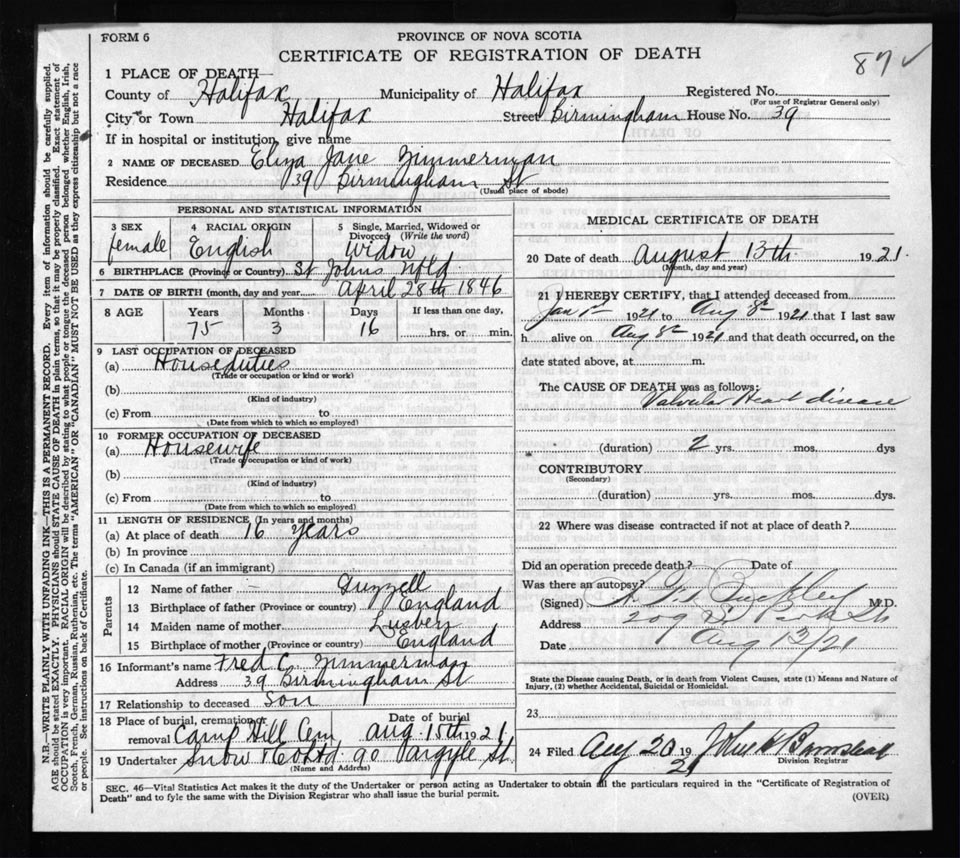 FORM 6
PROVINCE OF NOVA SCOTIA
CERTIFICATE OF REGISTRATION OF DEATH
87 ✓
1 PLACE OF DEATH—
County of Halifax Municipality of Halifax Registered No.
(For use of Registrar General only)
City or Town Halifax Street Birmingham House No. 39
If in hospital or institution, give name
2 NAME OF DECEASED Eliza Jane Zimmerman
Residence 39 Birmingham St
(Usual place of abode)
PERSONAL AND STATISTICAL INFORMATION
3 SEX 4 RACIAL ORIGIN 5 Single, Married, Widowed or Divorced (Write the word)
female English Widow
6 BIRTHPLACE (Province or Country) St Johns Nfld
7 DATE OF BIRTH (month, day and year) April 28th 1846
8 AGE Years Months Days If less than one day,
75 3 16 hrs. or min.
9 LAST OCCUPATION OF DECEASED
(a) Houseduties
(Trade or occupation or kind or work)
(b)
(Kind of industry)
(c) From to
(Date from which to which so employed)
10 FORMER OCCUPATION OF DECEASED
(a) Housewife
(Trade or occupation or kind of work)
(b)
(Kind of industry)
(c) From to
(Date from which to which so employed)
11 LENGTH OF RESIDENCE (In years and months)
(a) At place of death 16 years
(b) In province
(c) In Canada (if an immigrant)
Parents
12 Name of father — Guzzell
13 Birthplace of father (Province or country) England
14 Maiden name of mother Lusbey
15 Birthplace of mother (Province or country) England
16 Informant's name Fred C. Zimmerman
Address 39 Birmingham St
17 Relationship to deceased Son
18 Place of burial, cremation or removal Camp Hill Cem Date of burial Aug 15th 1921
19 Undertaker Snow & Co Ltd 90 Argyle St.
(Name and Address)
MEDICAL CERTIFICATE OF DEATH
20 Date of death August 13th 1921
(Month, day and year)
21 I HEREBY CERTIFY, that I attended deceased from
Jan 1st 1921 to Aug 8th 1921 that I last saw
h alive on Aug 8th 1921 and that death occurred, on the
date stated above, at m.
The CAUSE OF DEATH was as follows:
Valvular Heart disease
(duration) 2 yrs. mos. dys
CONTRIBUTORY
(Secondary)
(duration) yrs. mos. dys.
22 Where was disease contracted if not at place of death?
Did an operation precede death? Date of
Was there an autopsy?
(Signed) Buckley M.D.
Address 209 S. Park St
Date Aug 13/21
State the Disease causing Death, or in death from Violent Causes, state (1) Means and Nature of Injury, (2) whether Accidental, Suicidal or Homicidal.
23
24 Filed Aug 20 1921 John Barnstead
Division Registrar
SEC. 46—Vital Statistics Act makes it the duty of the Undertaker or person acting as Undertaker to obtain all the particulars required in the "Certificate of Registration of
Death" and to fyle the same with the Division Registrar who shall issue the burial permit.
(OVER)
N.B.—WRITE PLAINLY WITH UNFADING INK—THIS IS A PERMANENT RECORD. Every item of information should be carefully supplied.
AGE should be stated EXACTLY. PHYSICIANS should STATE CAUSE OF DEATH in plain terms, so that it may be properly classified. Exact statement of
OCCUPATION is very important. RACIAL ORIGIN will be described by stating to what people or tongue the deceased person belonged whether English, Irish,
Scotch, French, German, Russian, Ruthenian, etc. The terms "AMERICAN" OR "CANADIAN" MUST NOT BE USED as they express citizenship but not a race
or people. See instructions on back of Certificate.